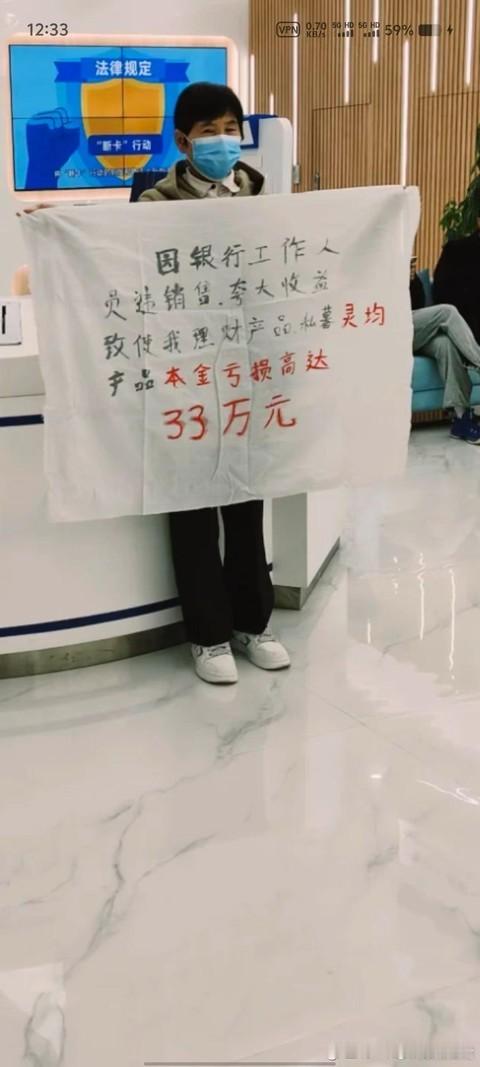 12:33
VPN 0.70 KB/s 5G HD 5G HD 59%
法律规定
"断卡"行动
因银行工作人
员违销售.夸大收益
致使我理财产品.私募灵均
产品本金亏损高达
33万元